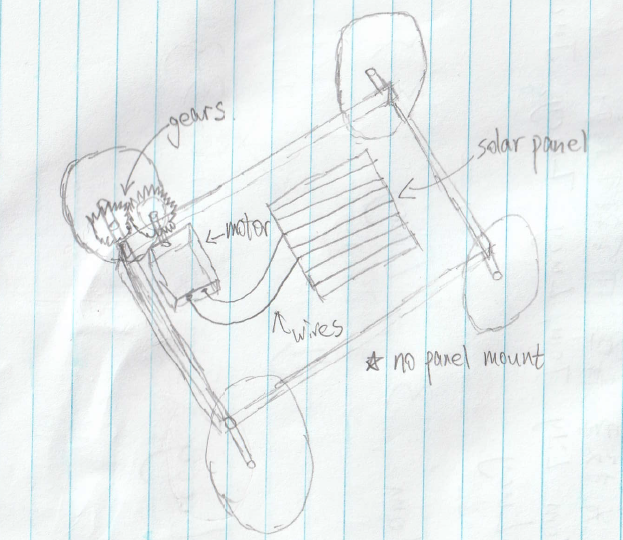 gears
solar panel
motor
wires
☆ no panel mount